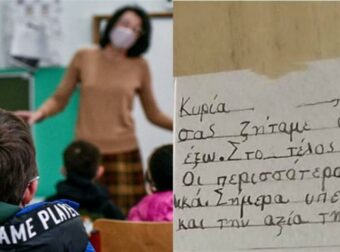 AME PLAYE
Κυρία
σας ζητάμε
έξω. Στο τέλος
Οι περισσοτερο
κά. Σήμερα υπε
και την αξία τη